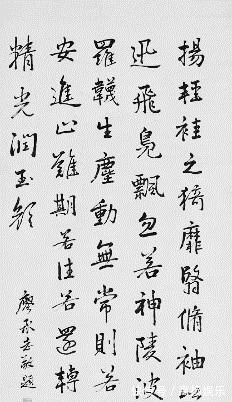 揚輕袿之猗靡翳脩袖以
迅飛鳧飄忽若神陵波
羅韈生塵動無常則若
安進止難期若往若還轉
精光潤玉顏
廖承志敬題